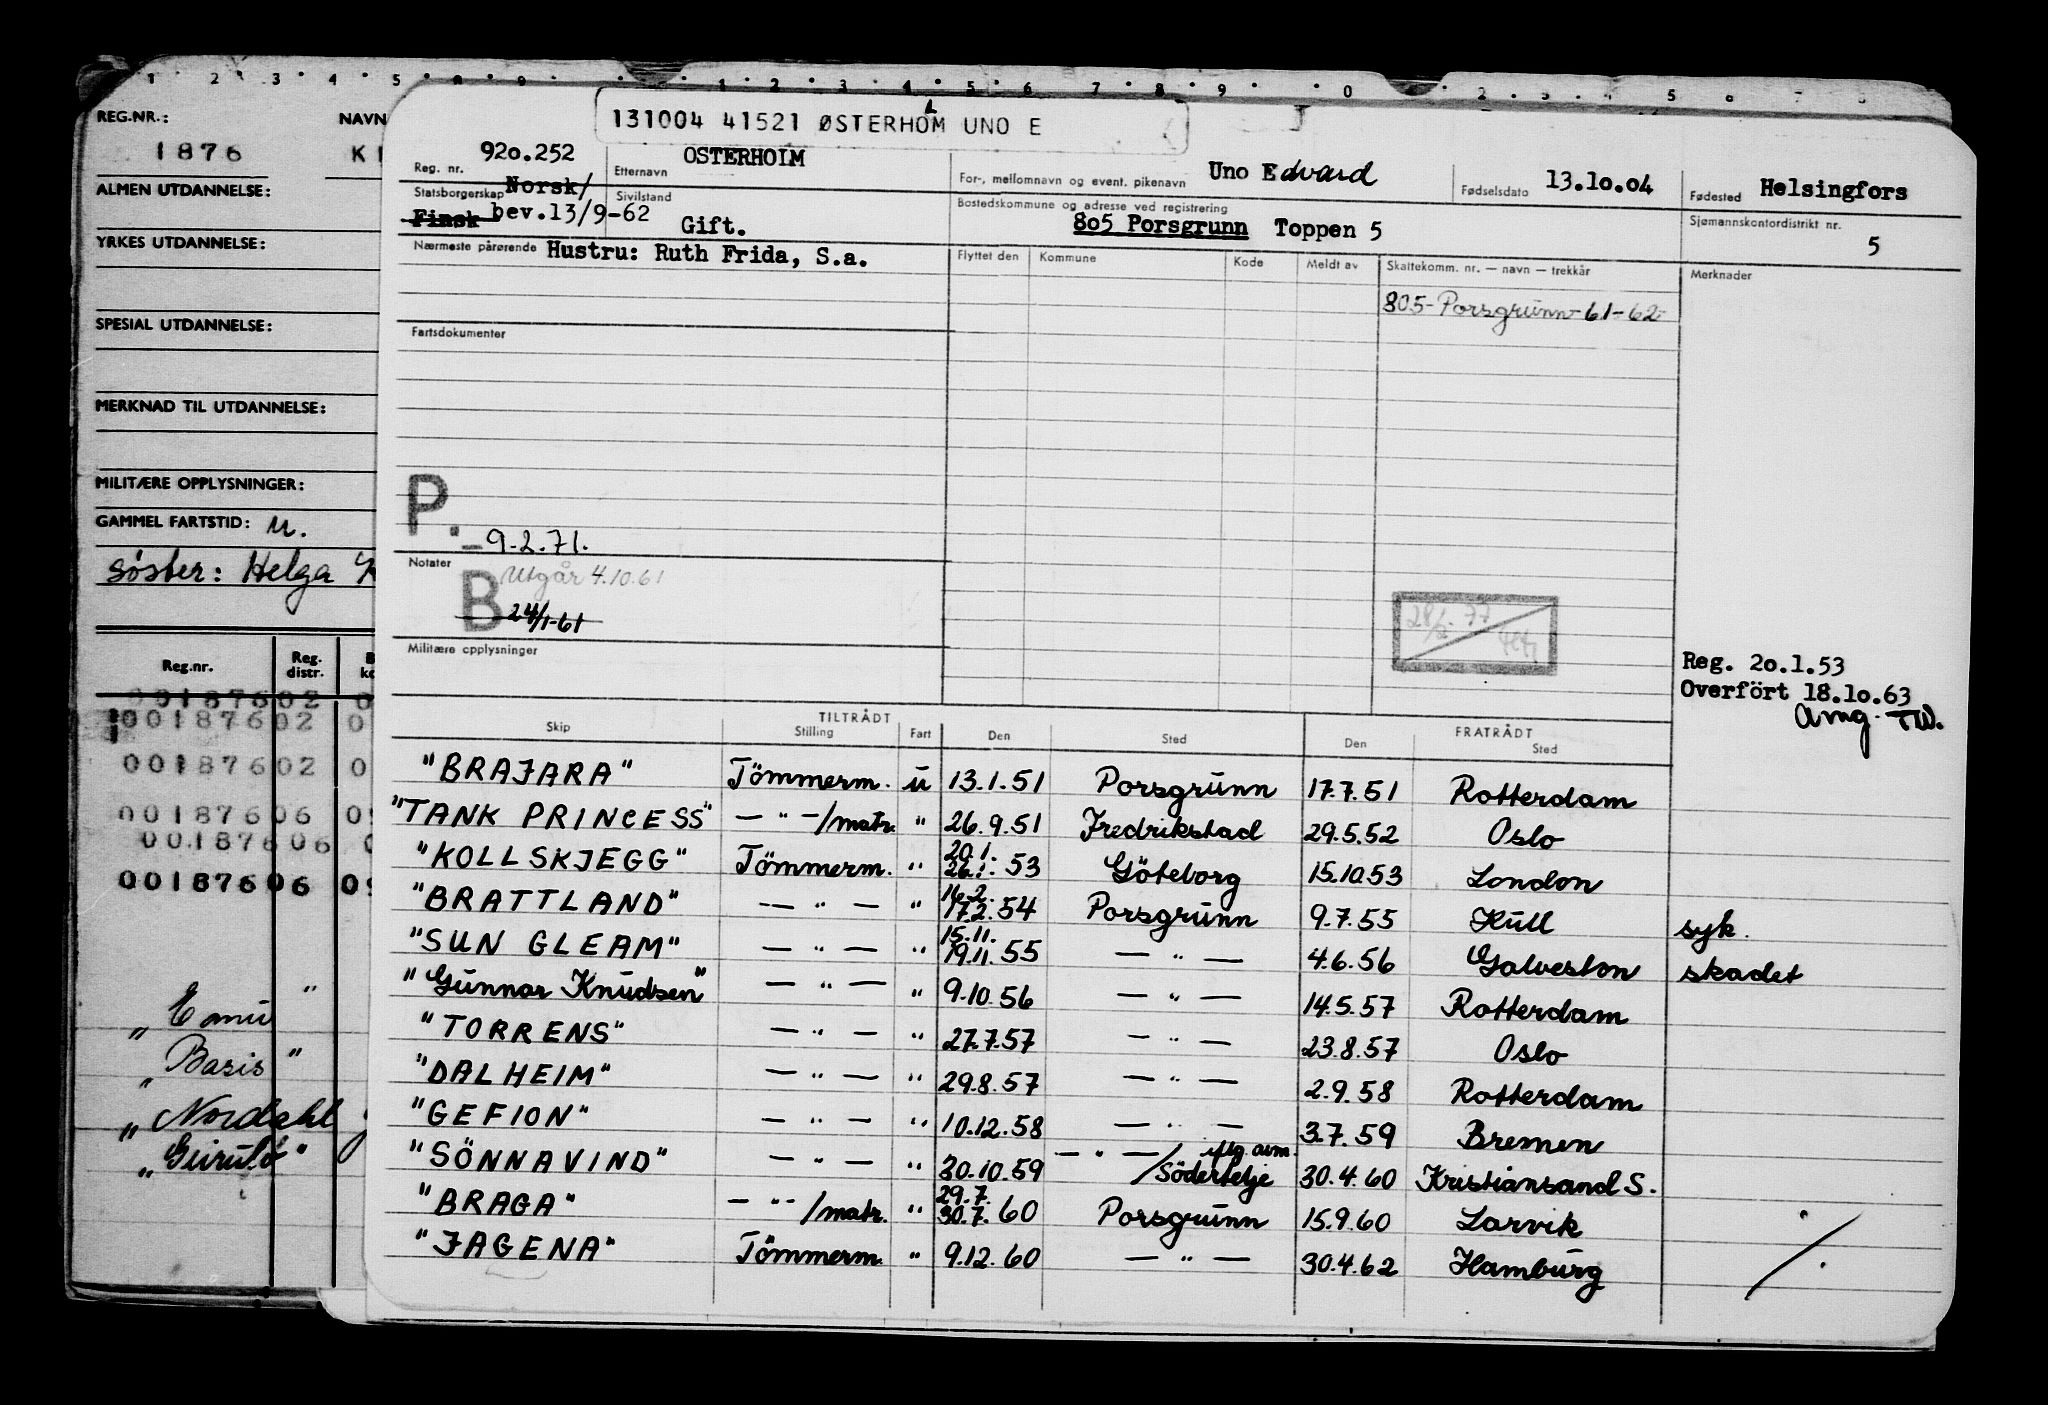 1 2 3 4 5 8 9 1 2 3 4 5 6 7 8 9 0 2 3 4 5 6 7 8
REG.NR.: NAVN
1876 K
ALMEN UTDANNELSE:
YRKES UTDANNELSE:
SPESIAL UTDANNELSE:
MERKNAD TIL UTDANNELSE:
MILITÆRE OPPLYSNINGER:
GAMMEL FARTSTID: u.
søster: Helga
Reg.nr. Reg. distr.
00187602 0
00187602 0
00187602 0
00187606 09
00187606 0
00187606 09
"
" Basis "
" Nordahl
131004 41521 ØSTERHOLM UNO E
Reg. nr. 920.252 Etternavn OSTERHOIM For-, mellomnavn og event. pikenavn Uno Edvard Fødselsdato 13.10.04 Fødested Helsingfors
Statsborgerskap Norsk/ Finsk bev.13/9-62 Sivilstand Gift. Bostedskommune og adresse ved registrering 805 Porsgrunn Toppen 5 Sjømannskontordistrikt nr. 5
Nærmeste pårørende Hustru: Ruth Frida, S.a. Flyttet den Kommune Kode Meldt av Skattekomm. nr. — navn — trekkår Merknader
805-Porsgrunn-61-62
Fartsdokumenter
P. -9.2.71.
Notater
B Utgår 4.10.61
24/1-61
28/2-77
Militære opplysninger
Reg. 20.1.53
Overført 18.10.63
Amg. TW.
TILTRÅDT FRATRÅDT
Skip Stilling Fart Den Sted Den Sted
"BRAJARA" Tömmerm. u 13.1.51 Porsgrunn 17.7.51 Rotterdam
"TANK PRINCESS" — " —/matr. " 26.9.51 Fredrikstad 29.5.52 Oslo
"KOLLSKJEGG" Tömmerm. " 20.1. 26.1.53 Göteborg 15.10.53 London
"BRATTLAND" — " — " 16.2. 17.2.54 Porsgrunn 9.7.55 Hull syk.
"SUN GLEAM" — " — " 15.11. 19.11.55 — " — 4.6.56 Galveston skadet
"Gunnar Knudsen" — " — " 9.10.56 — " — 14.5.57 Rotterdam
"TORRENS" — " — " 27.7.57 — " — 23.8.57 Oslo
"DALHEIM" — " — " 29.8.57 — " — 2.9.58 Rotterdam
"GEFION" — " — " 10.12.58 — " — 3.7.59 Bremen
"SÖNNAVIND" — " — " 30.10.59 — " —/iflg. avm. Södertelje 30.4.60 Kristiansand S.
"BRAGA" — " —/matr. " 29.7. 30.7.60 Porsgrunn 15.9.60 Larvik
"JAGENA" Tömmerm. " 9.12.60 — " — 30.4.62 Hamburg